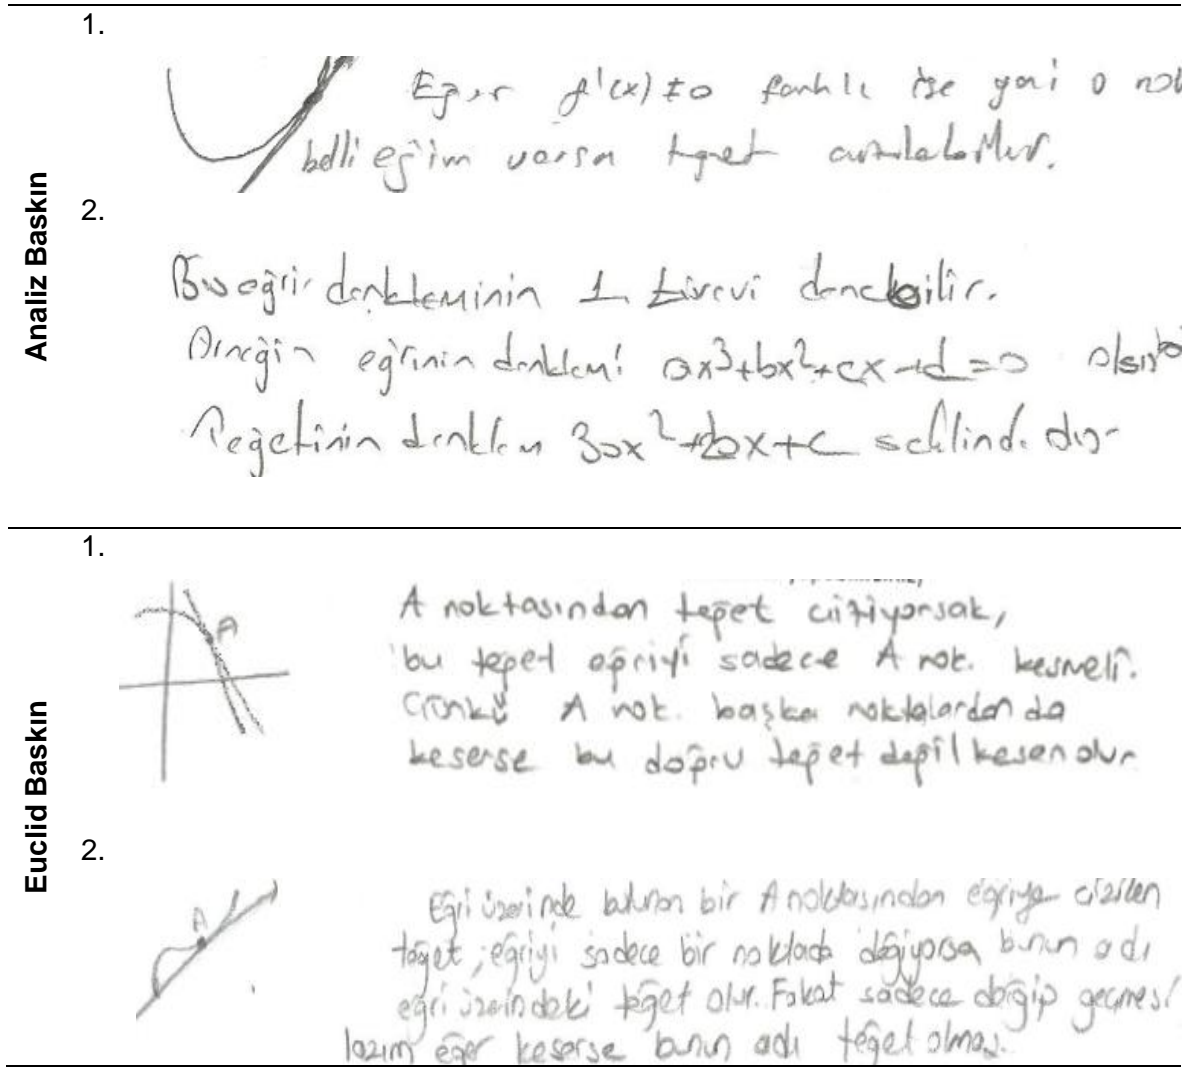 Analiz Baskın
1.
Eğer f'(x)≠0 farklı ise yani o nok
belli eğim varsa teget çizilebilir.
2.
Bu eğri denkleminin 1. türevi denebilir.
Örneğin eğrinin denklemi ax³+bx²+cx+d=0 olsun
Teğetinin denklem 3ax²+bx+c seklinde dir
Euclid Baskın
1.
A
A noktasından teğet çiziyorsak,
bu teğet eğriyi sadece A nok. kesmeli.
Çünkü A nok. başka noktalardan da
keserse bu doğru teğet değil kesen olur
2.
A
Eğri üzerinde bulunan bir A noktasından eğriye çizilen
teğet, eğriyi sadece bir noktada değiyorsa bunun adı
eğri üzerindeki teğet olur. Fakat sadece değip geçmesi
lazım eğer keserse bunun adı teğet olmaz.